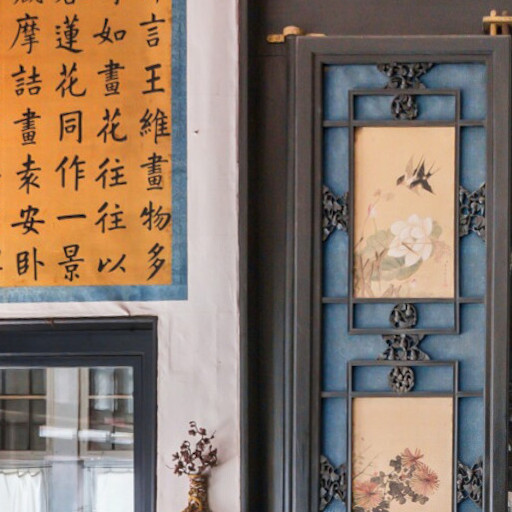 言王維畫物多
如畫花往往以
蓮花同作一景
摩詰畫袁安卧